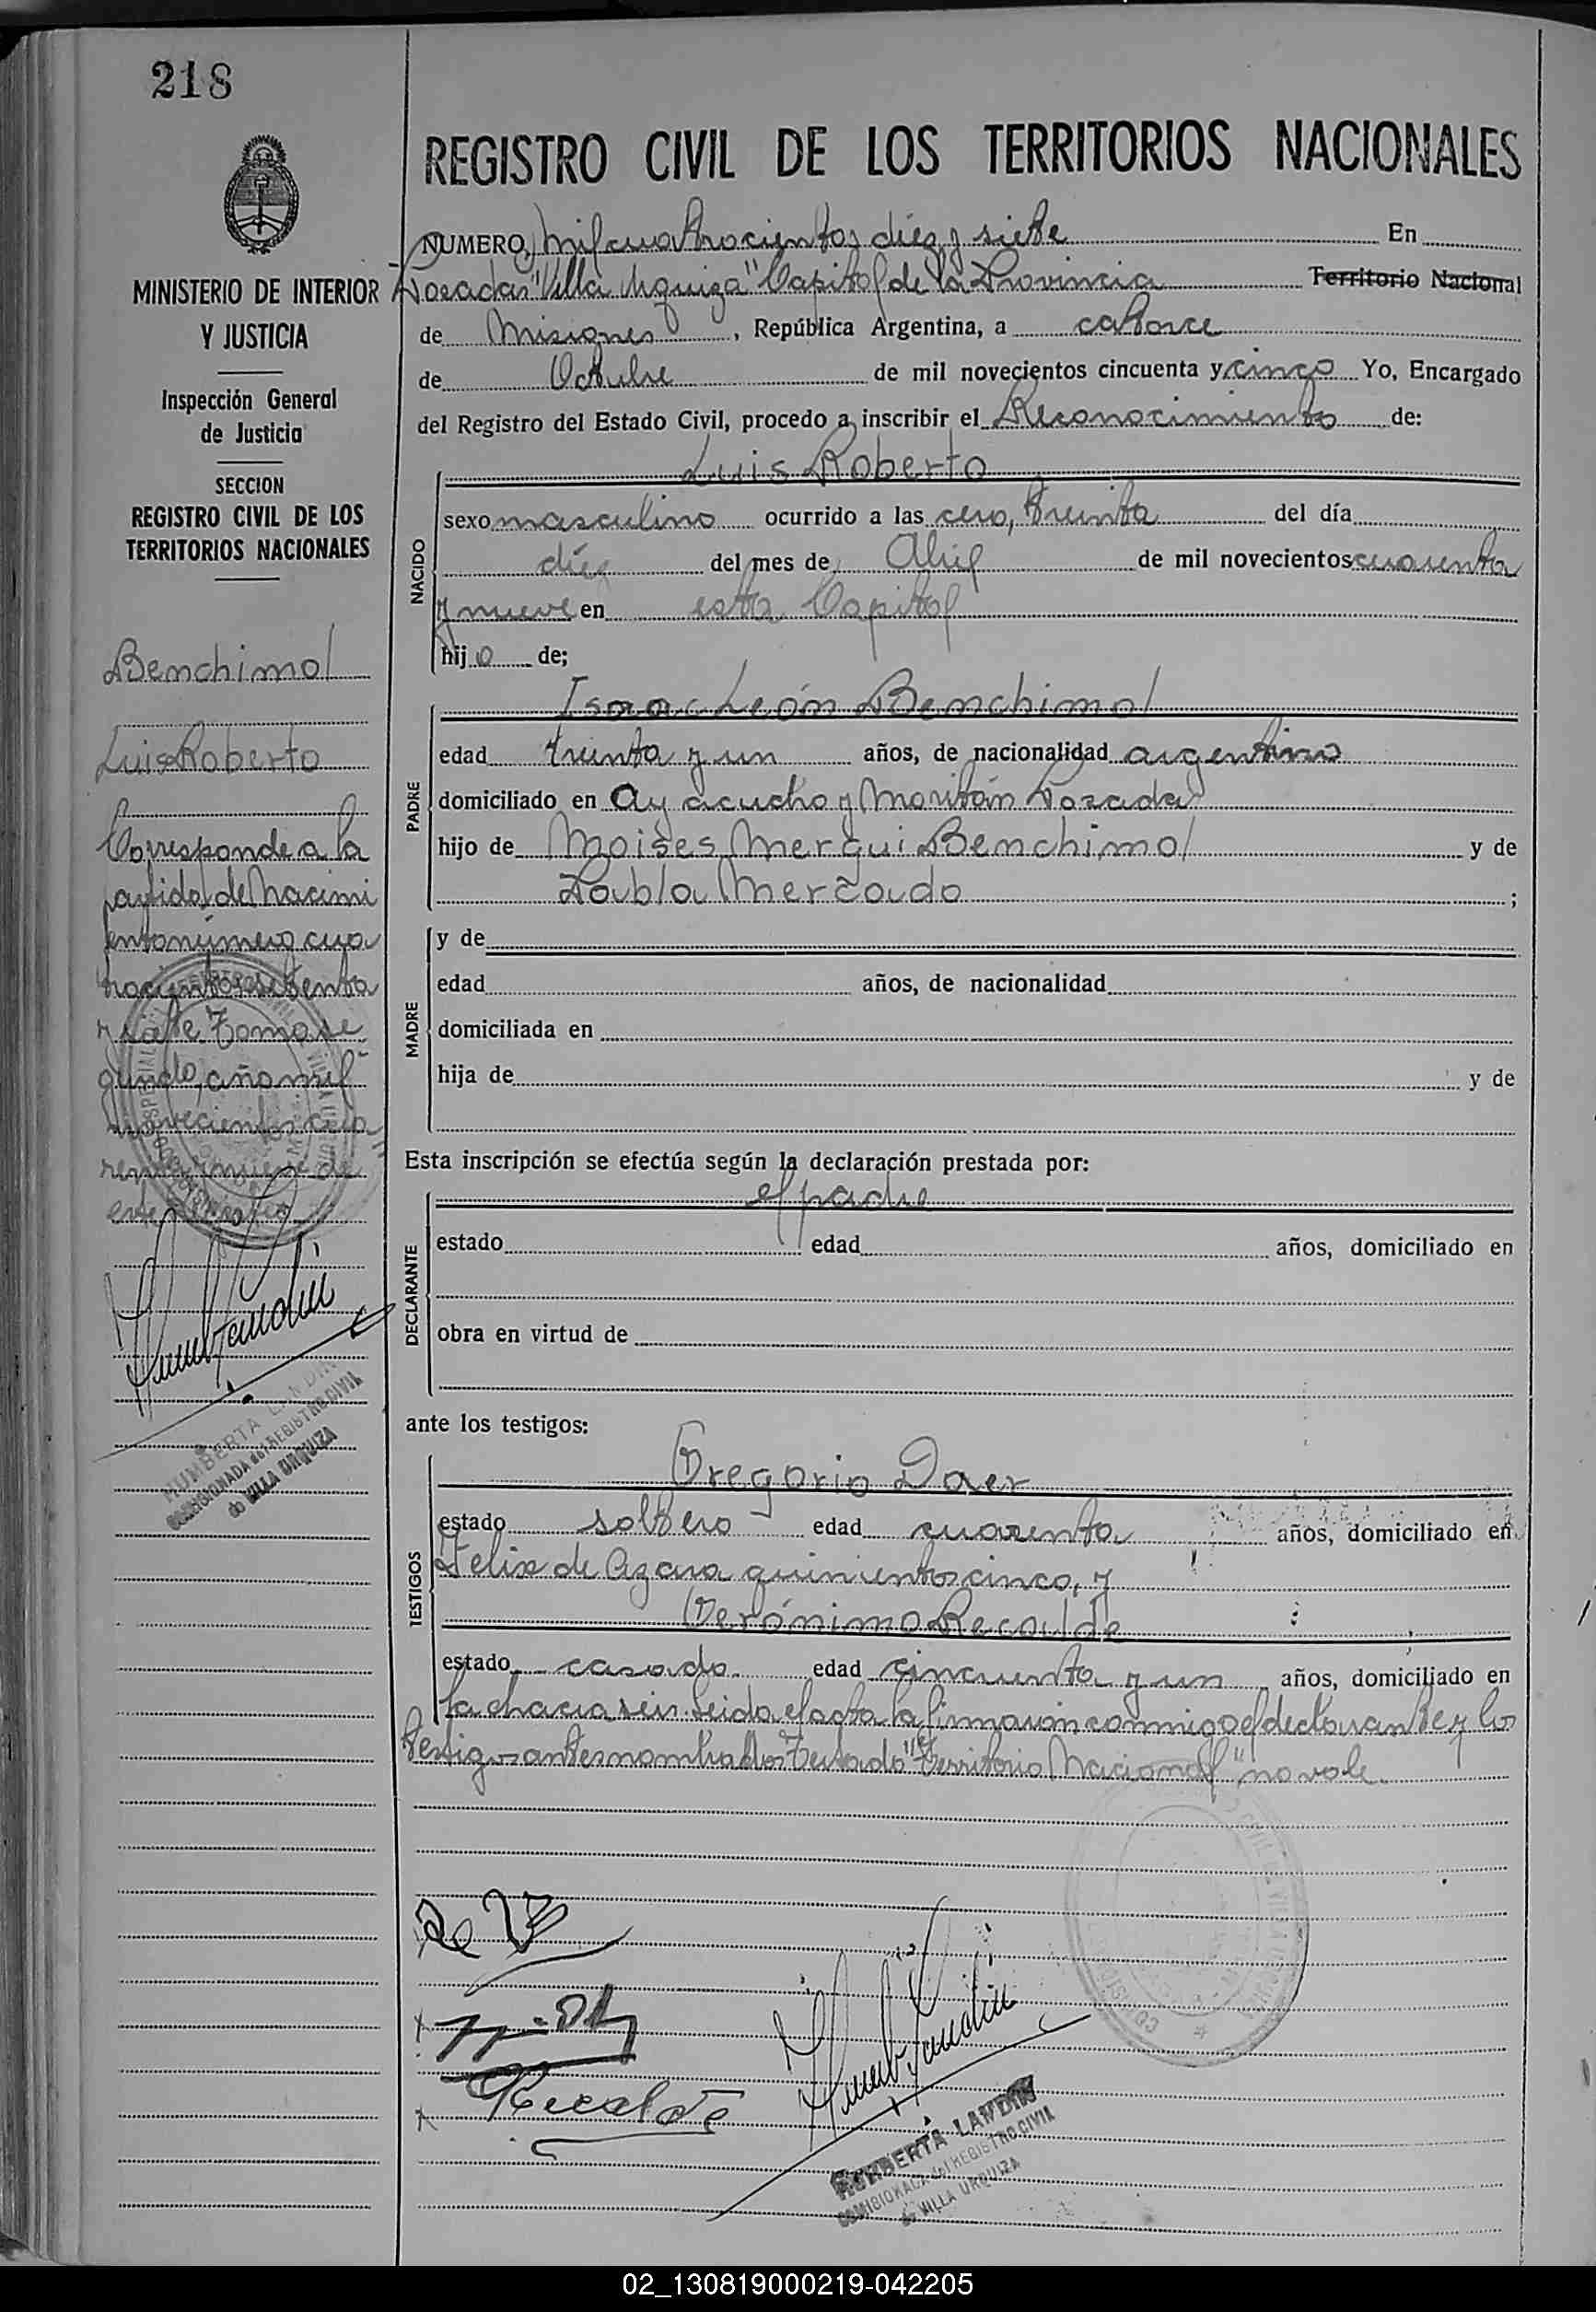 218
MINISTERIO DE INTERIOR
Y JUSTICIA
Inspección General
de Justicia
SECCION
REGISTRO CIVIL DE LOS
TERRITORIOS NACIONALES
Benchimol
Luis Roberto
Corresponde a la
partida de Nacimi
ento número cua
trocientos setenta
y siete Tomo se
gundo, año mil
novecientos cua
renta y nueve de
este
HUMBERTA LANDIN
COMISIONADA del REGISTRO CIVIL
de VILLA URQUIZA
REGISTRO CIVIL DE LOS TERRITORIOS NACIONALES
NUMERO mil cuatrocientos diez y siete En
Posadas "Villa Urquiza" Capital de la Provincia Territorio Nacional
de Misiones, República Argentina, a catorce
de Octubre de mil novecientos cincuenta y cinco Yo, Encargado
del Registro del Estado Civil, procedo a inscribir el Reconocimiento de:
NACIDO
Luis Roberto
sexo masculino ocurrido a las cero, treinta del día
diez del mes de Abril de mil novecientos cuarenta
y nueve en esta Capital
hijo de;
PADRE
Isaac León Benchimol
edad treinta y un años, de nacionalidad argentino
domiciliado en Ayacucho y Posadas
hijo de Moises Mergui Benchimol y de
Pabla Mercado ;
MADRE
y de
edad años, de nacionalidad
domiciliada en
hija de y de
Esta inscripción se efectúa según la declaración prestada por:
DECLARANTE
el padre
estado edad años, domiciliado en
obra en virtud de
ante los testigos:
TESTIGOS
Gregorio Daer
estado soltero edad cuarenta años, domiciliado en
Felix de Azara quinientos cinco, y
Gerónimo Recalde
estado casado edad cincuenta y un años, domiciliado en
la chacra seis. Leida el acta la firmaron conmigo el declarante y los
testigos antes nombrados Testado "Territorio Nacional" no vale.
Recalde
HUMBERTA LANDIN
COMISIONADA del REGISTRO CIVIL
de VILLA URQUIZA
02_130819000219-042205